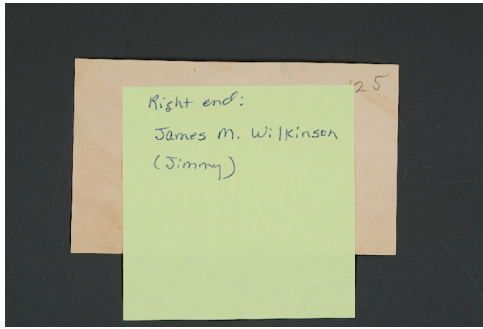 '25
Right end:
James M. Wilkinson
(Jimmy)